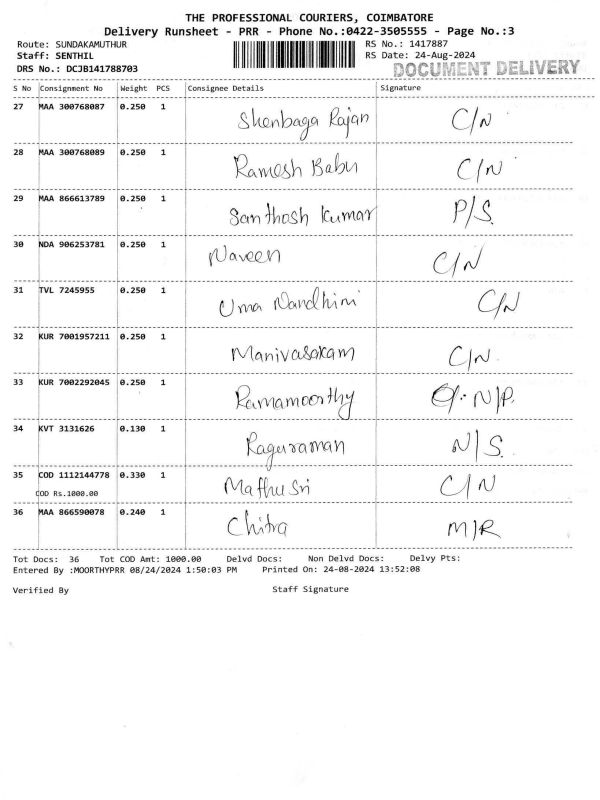 THE PROFESSIONAL COURIERS, COIMBATORE
Delivery Runsheet - PRR - Phone No.:0422-3505555 - Page No.:3
Route: SUNDAKAMUTHUR RS No.: 1417887
Staff: SENTHIL RS Date: 24-Aug-2024
DRS No.: DCJB141788703 DOCUMENT DELIVERY
S No Consignment No Weight PCS Consignee Details Signature
27 MAA 300768087 0.250 1 Shenbaga Rajan C/N
28 MAA 300768089 0.250 1 Ramesh Babu C/N
29 MAA 866613789 0.250 1 Santhosh Kumar P/S.
30 NDA 906253781 0.250 1 Naveen C/N
31 TVL 7245955 0.250 1 Uma Nandhini C/N
32 KUR 7001957211 0.250 1 Manivasakam C/N.
33 KUR 7002292045 0.250 1 Ramamoorthy N/P.
34 KVT 3131626 0.130 1 Raguraman N/S.
35 COD 1112144778 0.330 1 Mathusri C/N
COD Rs.1000.00
36 MAA 866590078 0.240 1 Chitra M/R
Tot Docs: 36 Tot COD Amt: 1000.00 Delvd Docs: Non Delvd Docs: Delvy Pts:
Entered By :MOORTHYPRR 08/24/2024 1:50:03 PM Printed On: 24-08-2024 13:52:08
Verified By Staff Signature